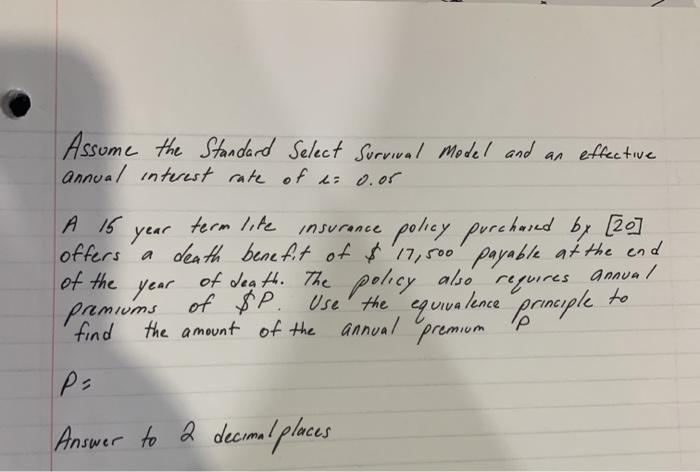 Assume the Standard Select Survival Model and an effective
annual interest rate of i= 0.05
A 15 year term life insurance policy purchased by [20]
offers a death benefit of $17,500 payable at the end
of the year of death. The policy also requires annual
premiums of $P. Use the equivalence principle to
find the amount of the annual premium P
P=
Answer to 2 decimal places